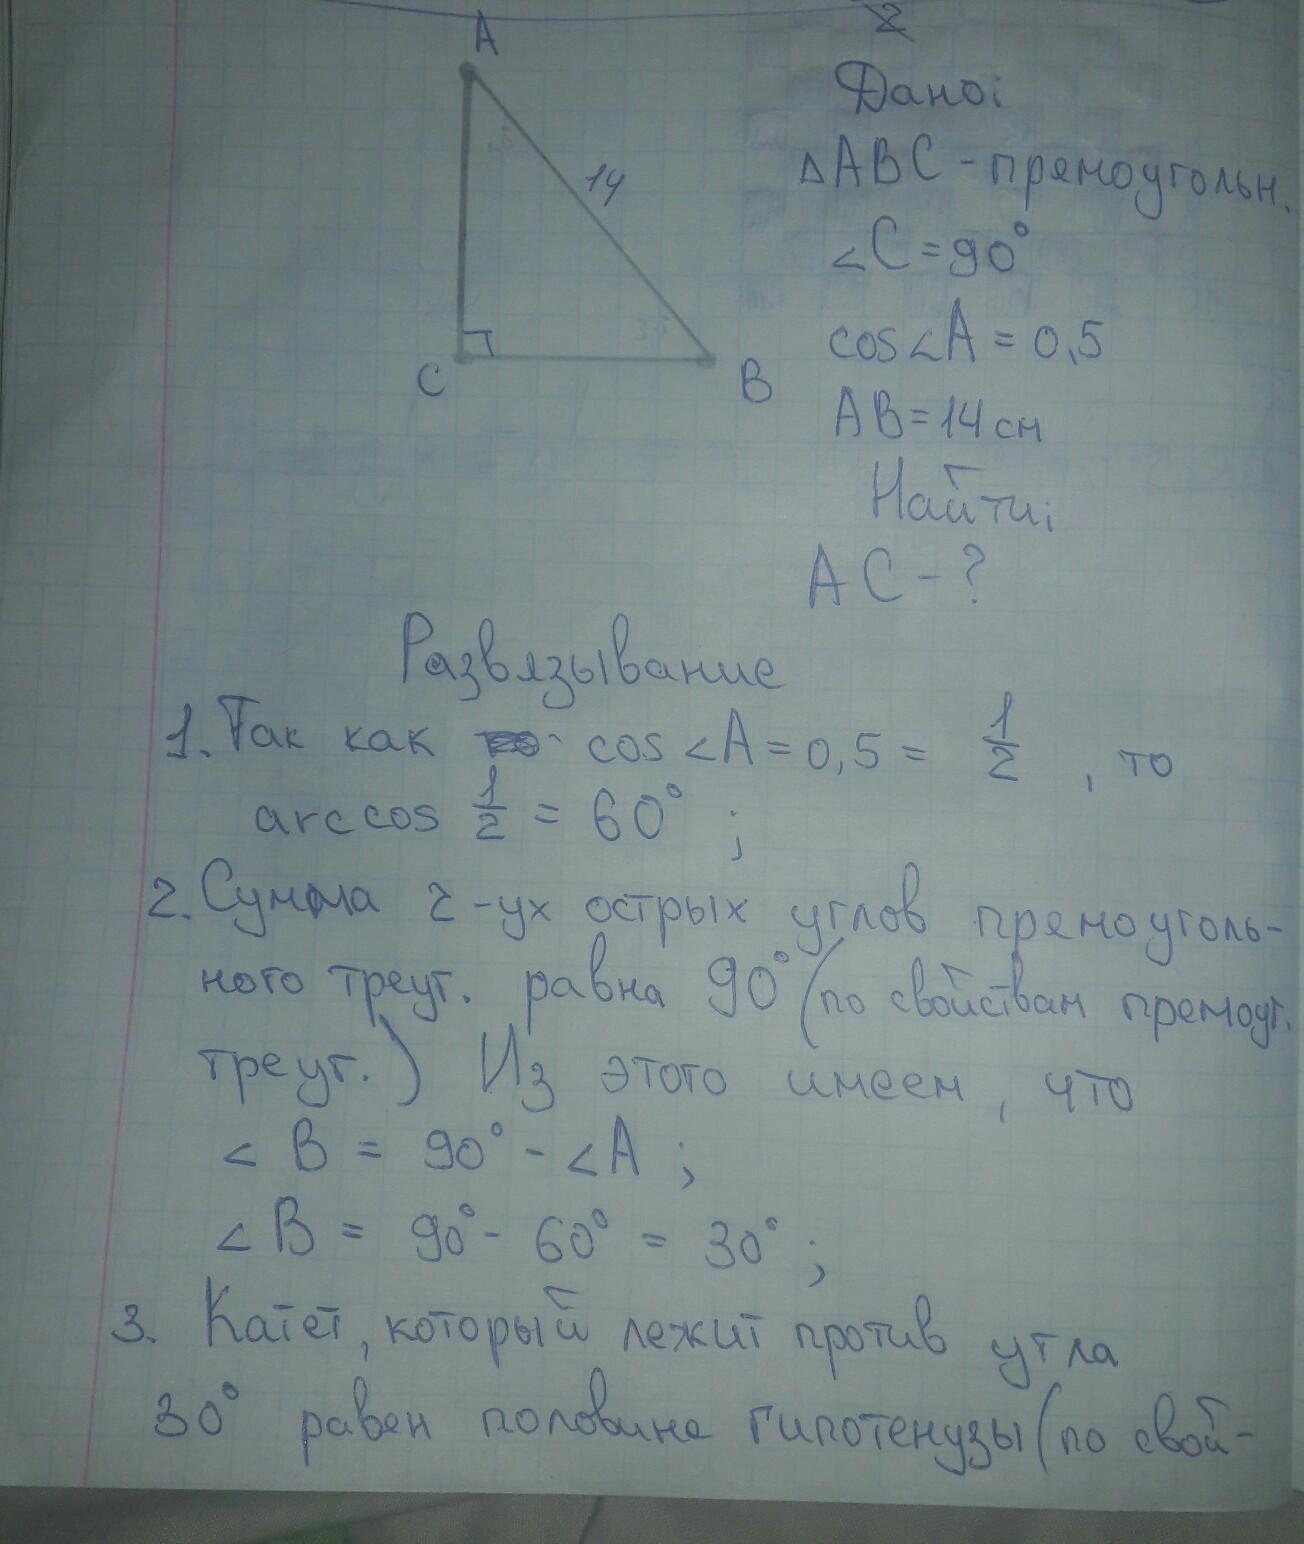 2
A
Дано:
ΔABC - прямоугольн.
14
∠C = 90°
cos∠A = 0,5
C
B
AB = 14 см
Найти:
AC - ?
Развязывание
1. Так как cos∠A = 0,5 = 1/2, то
arccos 1/2 = 60° ;
2. Сумма 2-ух острых углов прямоуголь-
ного треуг. равна 90° (по свойствам прямоуг.
треуг.) Из этого имеем, что
∠B = 90° - ∠A ;
∠B = 90° - 60° = 30° ;
3. Катет, который лежит против угла
30° равен половине гипотенузы (по свой-